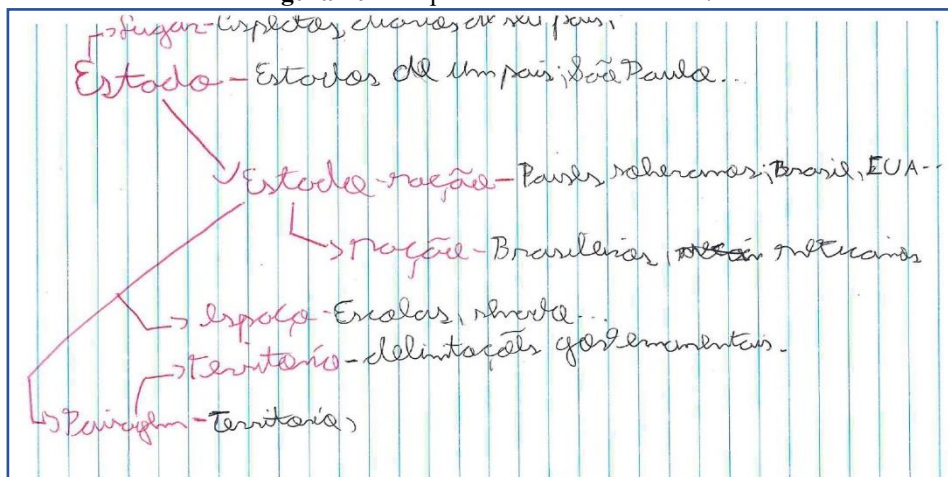 Lugar - Aspectos, de seu país,
Estado - Estados de um país; São Paulo...
Estado-nação - Países soberanos; Brasil, EUA...
nação - Brasileiros,
espaço - Escolas,
território - delimitações governamentais.
Paisagem - Territórios